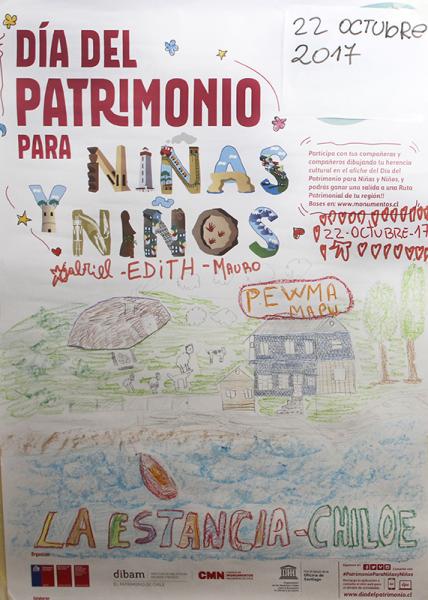 22 OCTUBRE
2017
DÍA DEL
PATRIMONIO
PARA NIÑAS
Y NIÑOS
Participa con tus compañeras y
compañeros dibujando tu herencia
cultural en el afiche del Día del
Patrimonio para Niñas y Niños, y
podrás ganar una salida a una Ruta
Patrimonial de tu región!!
Bases en: www.monumentos.cl
22-OCTUBRE-17
Gabriel-EDITH-MAURO
PEWMA
MAPU
LA ESTANCIA-CHILOE
Organizan
dibam
EL PATRIMONIO DE CHILE
CMN
Oficina de
Santiago
#PatrimonioParaNiñasyNiños
www.diadelpatrimonio.cl